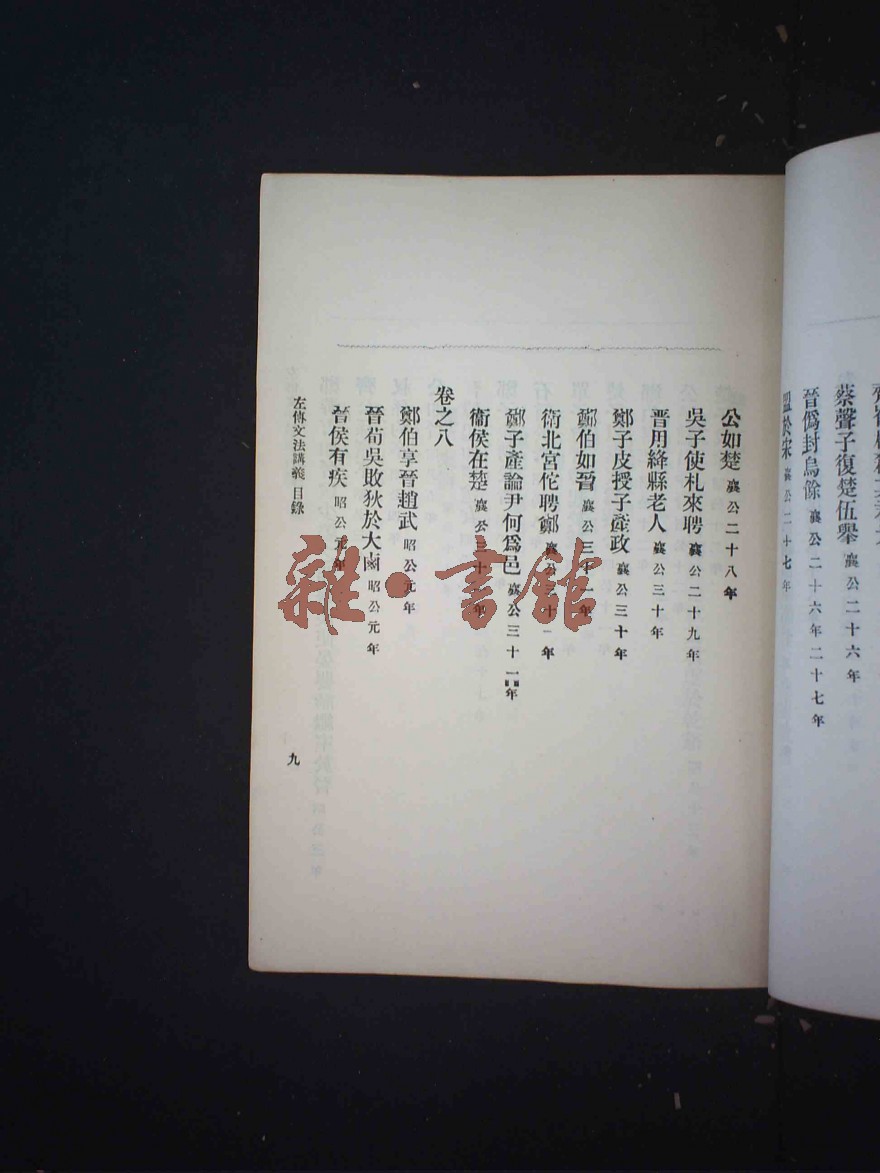 蔡聲子復楚伍舉 襄公二十六年
晉僞封烏餘 襄公二十六年二十七年
盟於宋 襄公二十七年
公如楚 襄公二十八年
吳子使札來聘 襄公二十九年
晋用絳縣老人 襄公三十年
鄭子皮授子產政 襄公三十年
鄭伯如晉 襄公三十一年
衛北宮佗聘鄭 襄公三十一年
鄭子產論尹何爲邑 襄公三十一年
衞侯在楚 襄公三十一年
卷之八
鄭伯享晉趙武 昭公元年
晉荀吳敗狄於大鹵 昭公元年
晉侯有疾 昭公元年
左傳文法講義 目錄
九
雜·書館